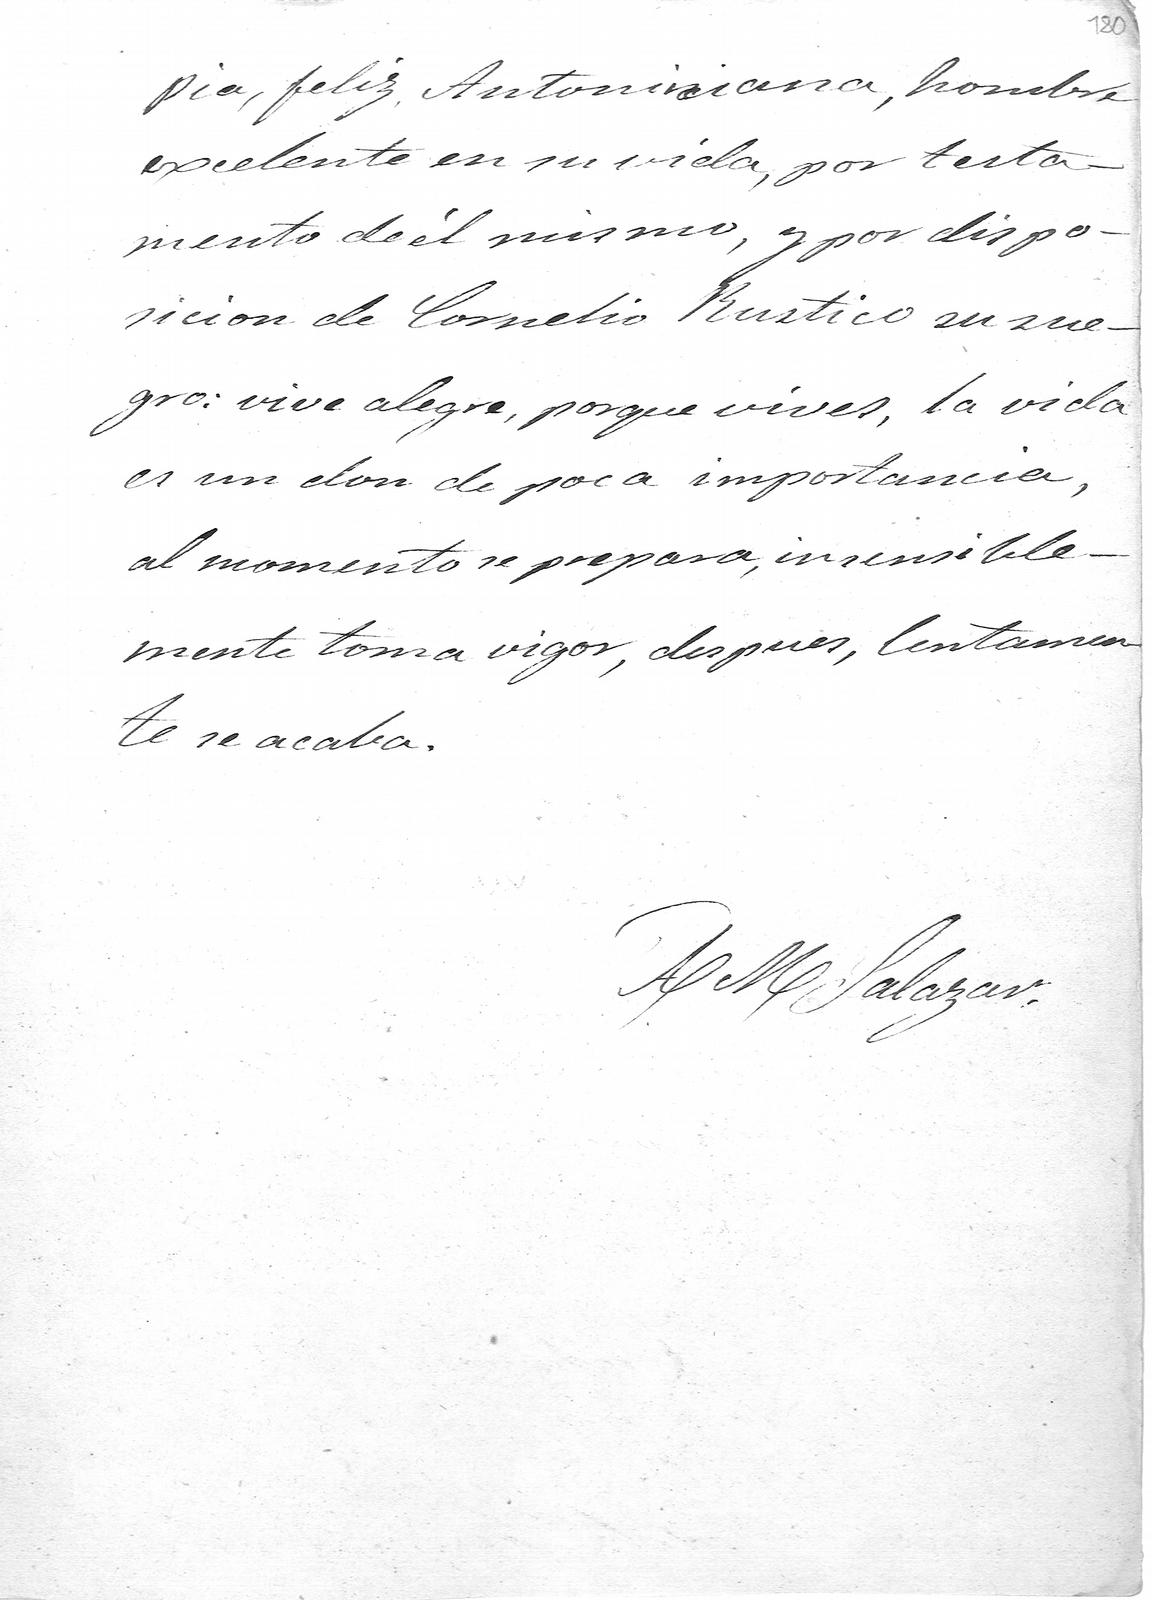 180
pia, feliz, Antoniniana, hombre
excelente en su vida, por testa-
mento de él mismo, y por dispo-
sicion de Cornelio Rustico su sue-
gro: vive alegre, porque vives, la vida
es un don de poca importancia,
al momento se prepara, insensible-
mente toma vigor, despues, lentamen
te se acaba.
A M Salazar.